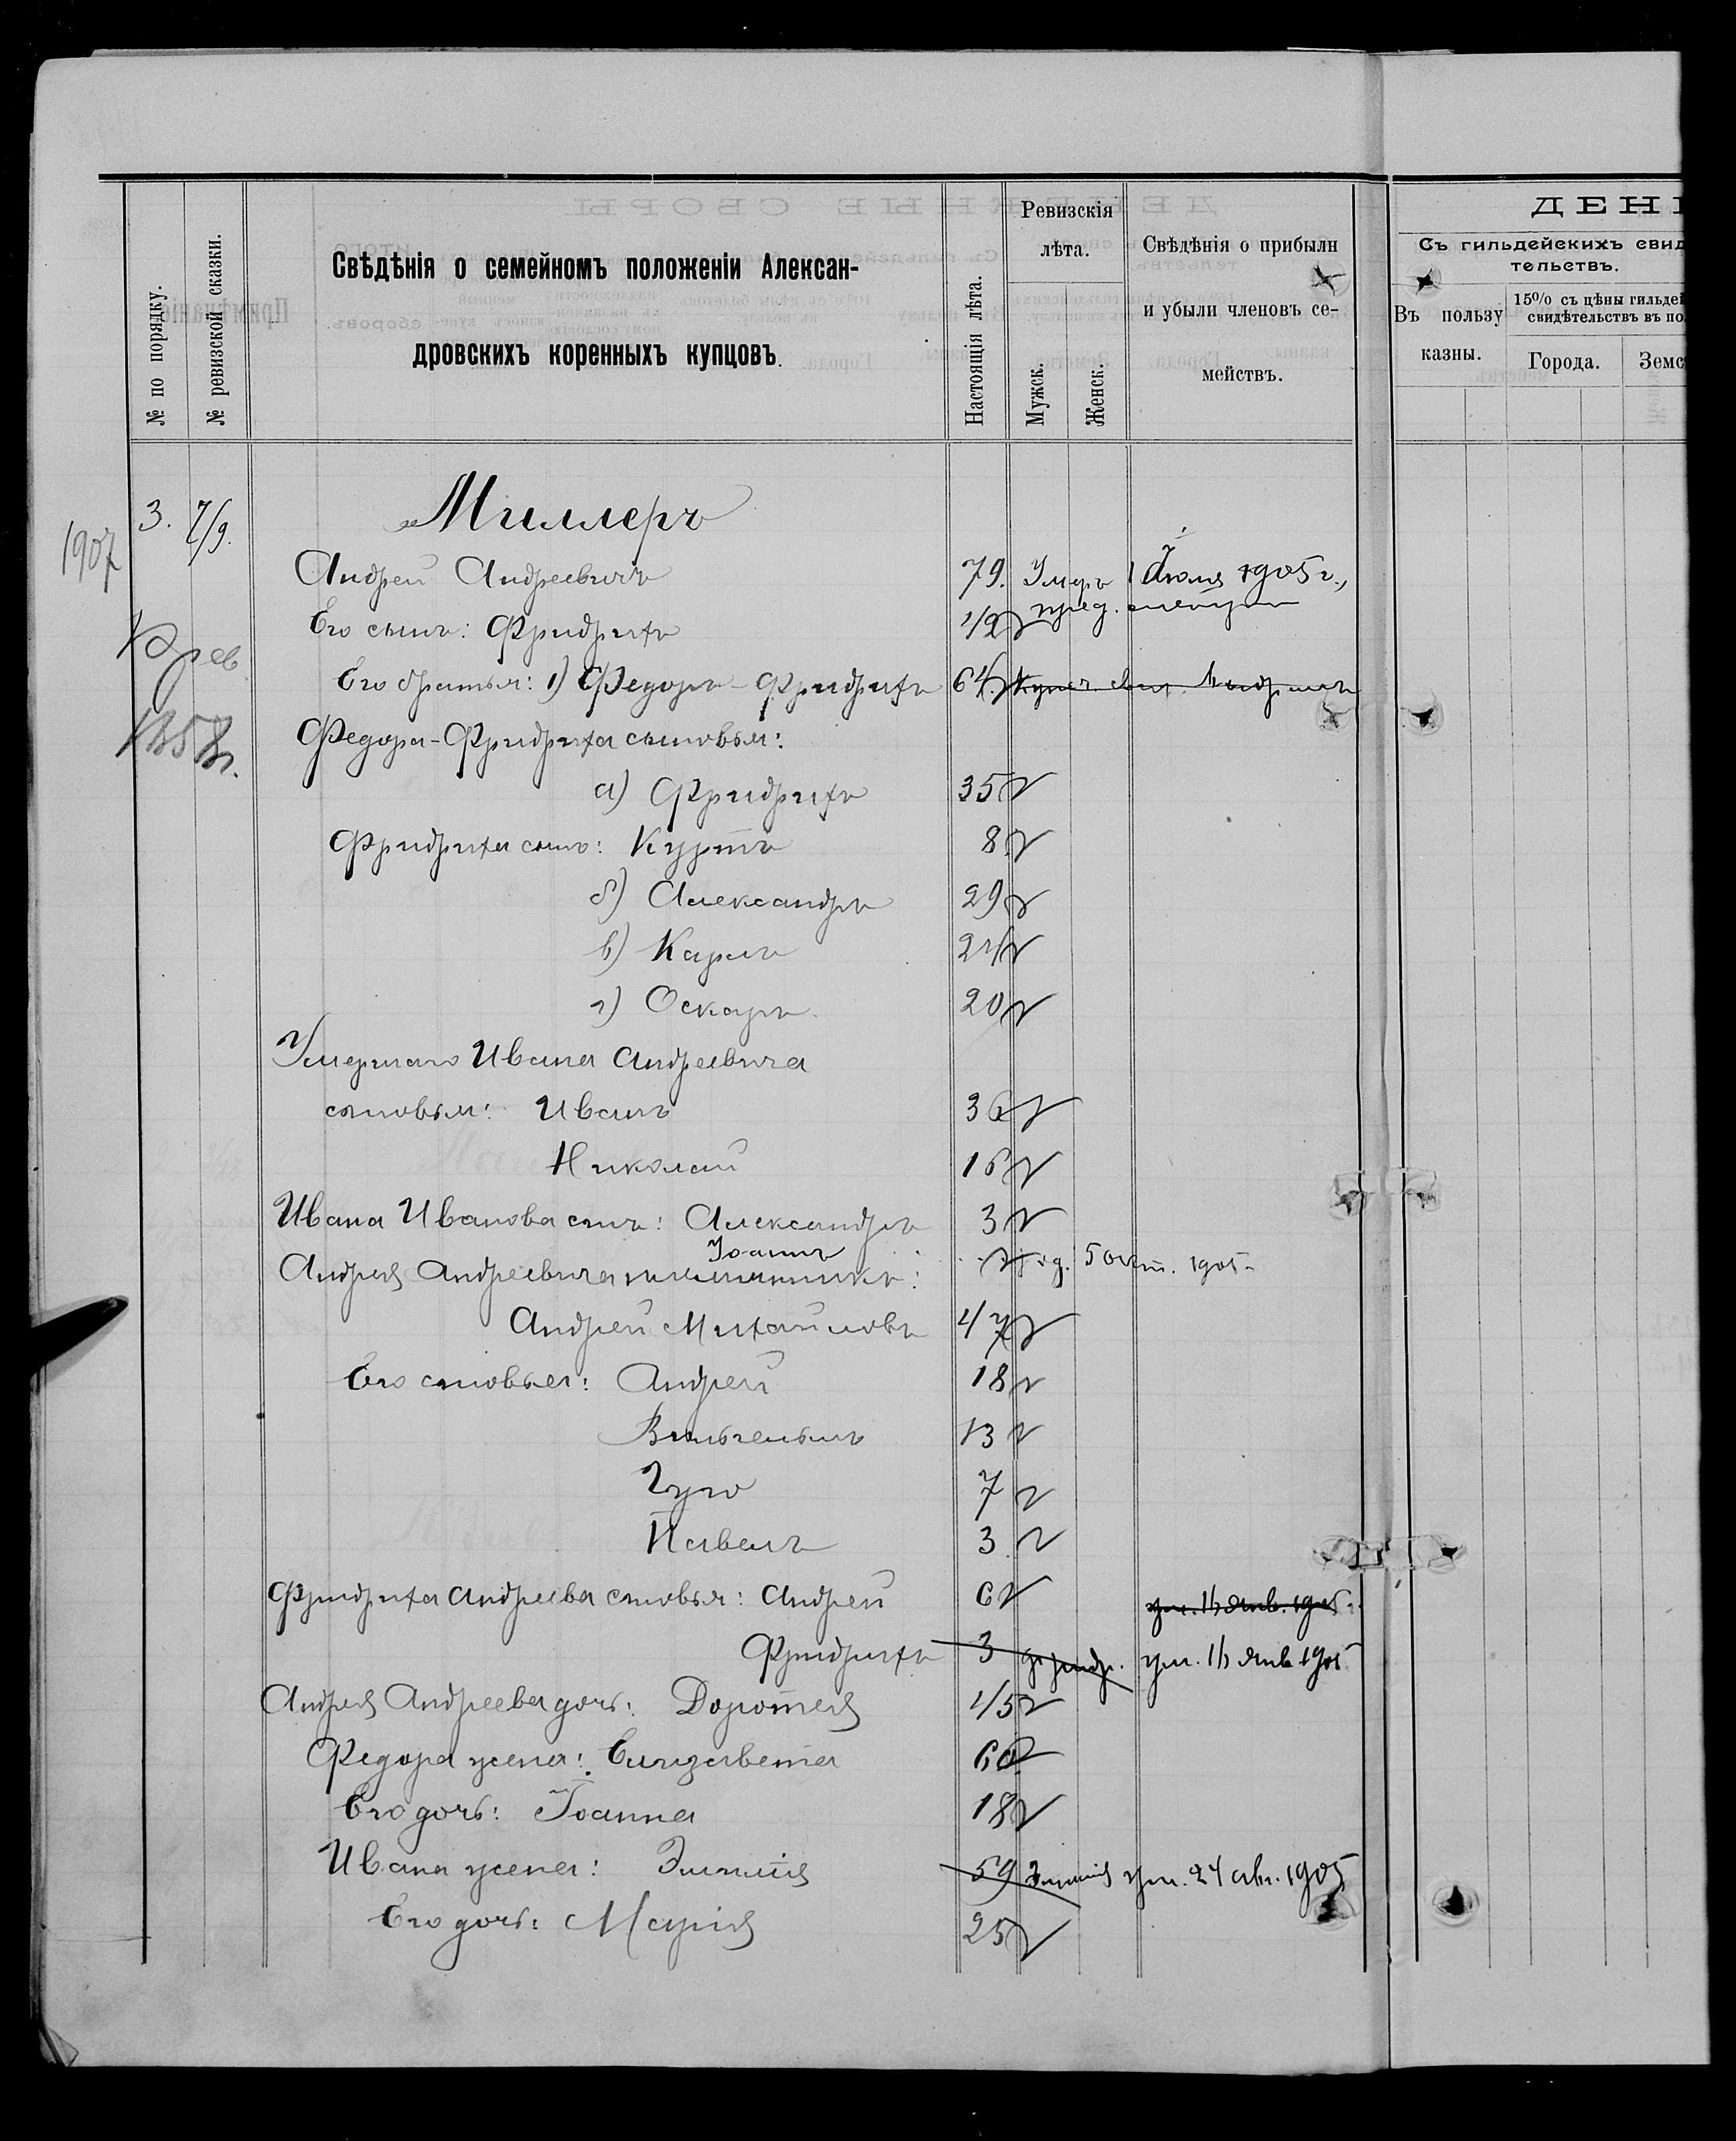 № по порядку.
№ ревизской сказки.
Свѣдѣнія о семейномъ положеніи Алексан-
дровскихъ коренныхъ купцовъ.
Настоящія лѣта.
Ревизскія
лѣта.
Мужск.
Женск.
Свѣдѣнія о прибыли
и убыли членовъ се-
мействъ.
ДЕН
Съ гильдейскихъ свид
тельствъ.
Въ пользу
казны.
15% съ цѣны гильде
свидѣтельствъ въ по
Города.
Земс
1907
3. 7/9. Миллеръ
Андрей Андреевичъ 79. Умеръ 1 Іюля 1905 г.,
Его сынъ: Фридрихъ 42
рев.
Его братья: 1) Федоръ-Фридрихъ 64
1858 г.
Федора-Фридриха сыновья:
а) Фридрихъ 35
Фридриха сынъ: Куртъ 8
б) Александръ 29
в) Карлъ 24
г) Оскаръ 20
Умершаго Ивана Андреевича
сыновья: Иванъ 36
Николай 16
Ивана Иванова сынъ: Александръ 3
Іоаннъ род. 5 окт. 1905
Андрея Андреевича племянникъ:
Андрей Михайловъ 47
Его сыновья: Андрей 18
Вильгельмъ 13
Гуго 7
Павелъ 3
Фридриха Андреева сыновья: Андрей 6 ум. 16 янв. 1905
Фридрихъ 3 Фридр. ум. 16 янв. 1905
Андрея Андреева дочь: Доротея 45
Федора жена: Елизавета 60
Его дочь: Іоанна 18
Ивана жена: Эмилія 59 Эмилія ум. 24 авг. 1905
Его дочь: Марія 25